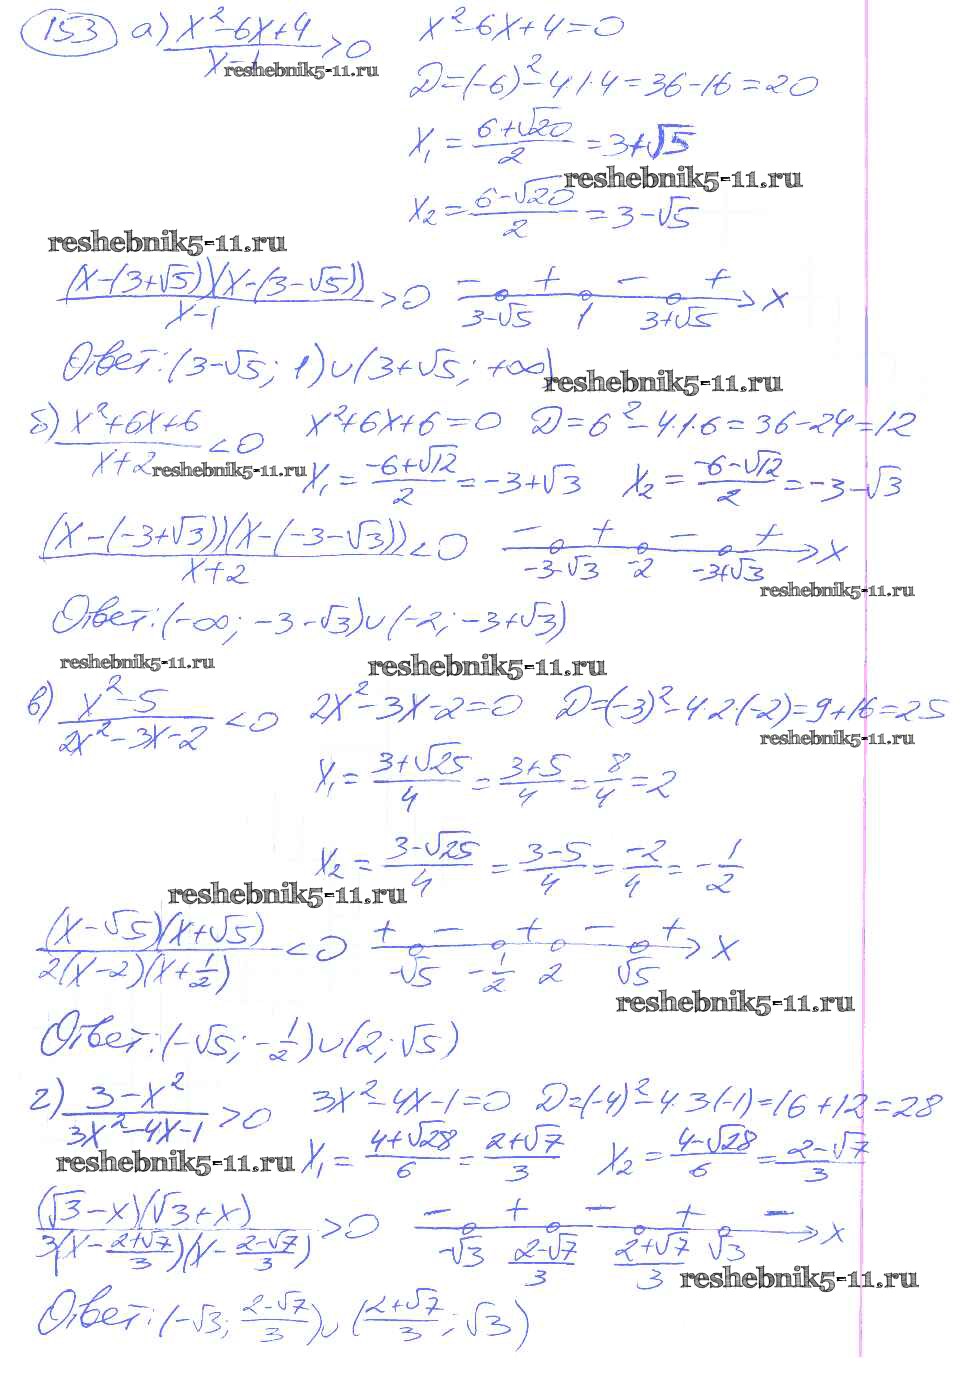 153 а) (x²-6x+4)/(x-1) > 0   x²-6x+4=0
reshebnik5-11.ru
D=(-6)²-4·1·4=36-16=20
x₁ = (6+√20)/2 = 3+√5
reshebnik5-11.ru
x₂ = (6-√20)/2 = 3-√5
reshebnik5-11.ru
(x-(3+√5))(x-(3-√5))/(x-1) > 0   - + - + x
3-√5   1   3+√5
Ответ: (3-√5; 1)∪(3+√5; +∞)
reshebnik5-11.ru
б) (x²+6x+6)/(x+2) < 0   x²+6x+6=0   D=6²-4·1·6=36-24=12
reshebnik5-11.ru
x₁ = (-6+√12)/2 = -3+√3   x₂ = (-6-√12)/2 = -3-√3
(x-(-3+√3))(x-(-3-√3))/(x+2) < 0   - + - + x
-3-√3   -2   -3+√3
reshebnik5-11.ru
Ответ: (-∞; -3-√3)∪(-2; -3+√3)
reshebnik5-11.ru   reshebnik5-11.ru
в) (x²-5)/(2x²-3x-2) < 0   2x²-3x-2=0   D=(-3)²-4·2·(-2)=9+16=25
reshebnik5-11.ru
x₁ = (3+√25)/4 = (3+5)/4 = 8/4 = 2
x₂ = (3-√25)/4 = (3-5)/4 = -2/4 = -1/2
reshebnik5-11.ru
(x-√5)(x+√5)/(2(x-2)(x+1/2)) < 0   + - + - + x
-√5   -1/2   2   √5
reshebnik5-11.ru
Ответ: (-√5; -1/2)∪(2; √5)
г) (3-x²)/(3x²-4x-1) > 0   3x²-4x-1=0   D=(-4)²-4·3(-1)=16+12=28
reshebnik5-11.ru
x₁ = (4+√28)/6 = (2+√7)/3   x₂ = (4-√28)/6 = (2-√7)/3
(√3-x)(√3+x)/(3(x-(2+√7)/3)(x-(2-√7)/3)) > 0   - + - + - x
-√3   (2-√7)/3   (2+√7)/3   √3
reshebnik5-11.ru
Ответ: (-√3; (2-√7)/3)∪((2+√7)/3; √3)